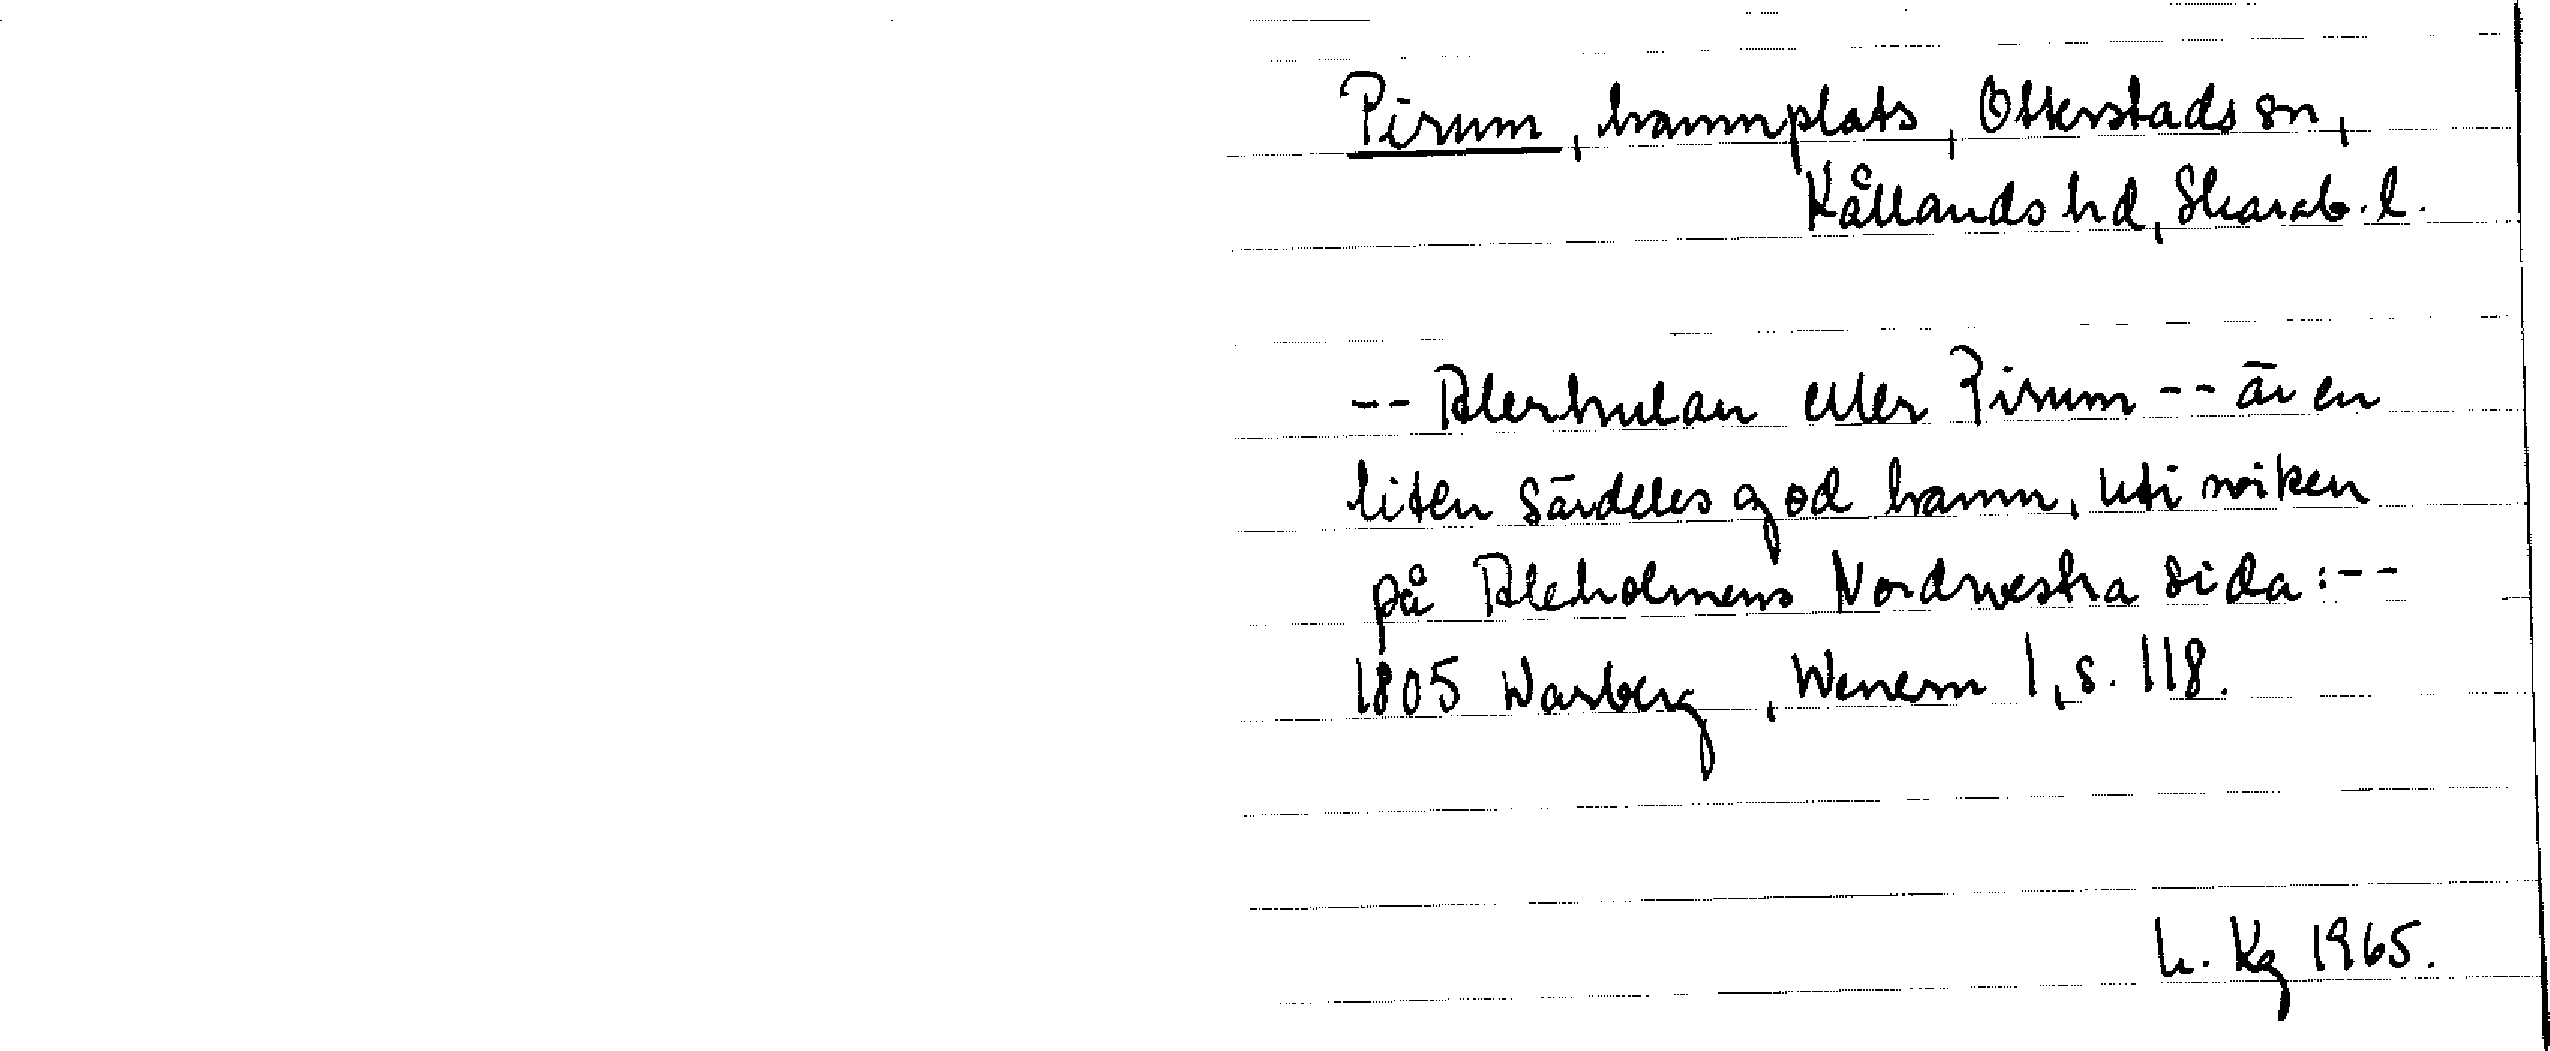 Pirum, hamnplats, Otterstads sn,
Kållands hd, Skarab. l.
-- Alerhulan eller Pirum -- är en
liten särdeles god hamn, uti wiken
på Aleholmens Nordwestra sida: --
1805 Warberg, Wenern I, s. 118.
h. Kg 1965.